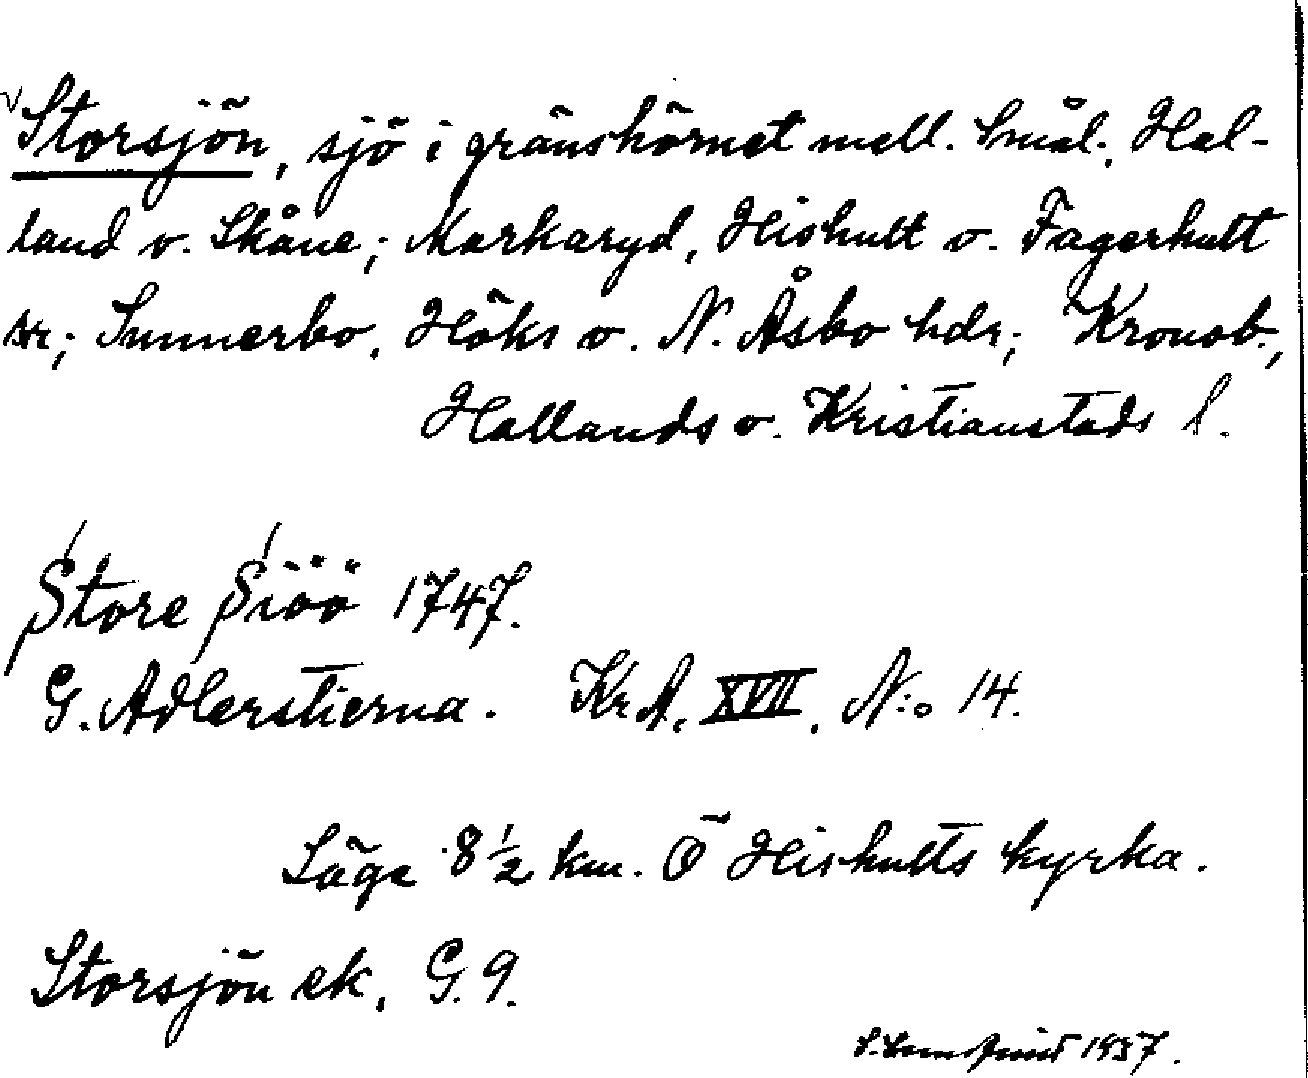 Storsjön, sjö i gränshörnet mell. Smål., Hal-
land o. Skåne; Markaryd, Hishult o. Fagerhult
snr; Sunnerbo, Höks o. N. Åsbo hdr; Kronob.,
Hallands o. Kristianstads l.
Store Siöö 1747.
G. Adlerstierna. Kr A. XVII. N:o 14.
Läge 8 1/2 km. Ö Hishults kyrka.
Storsjön ek. G. 9.
1937.